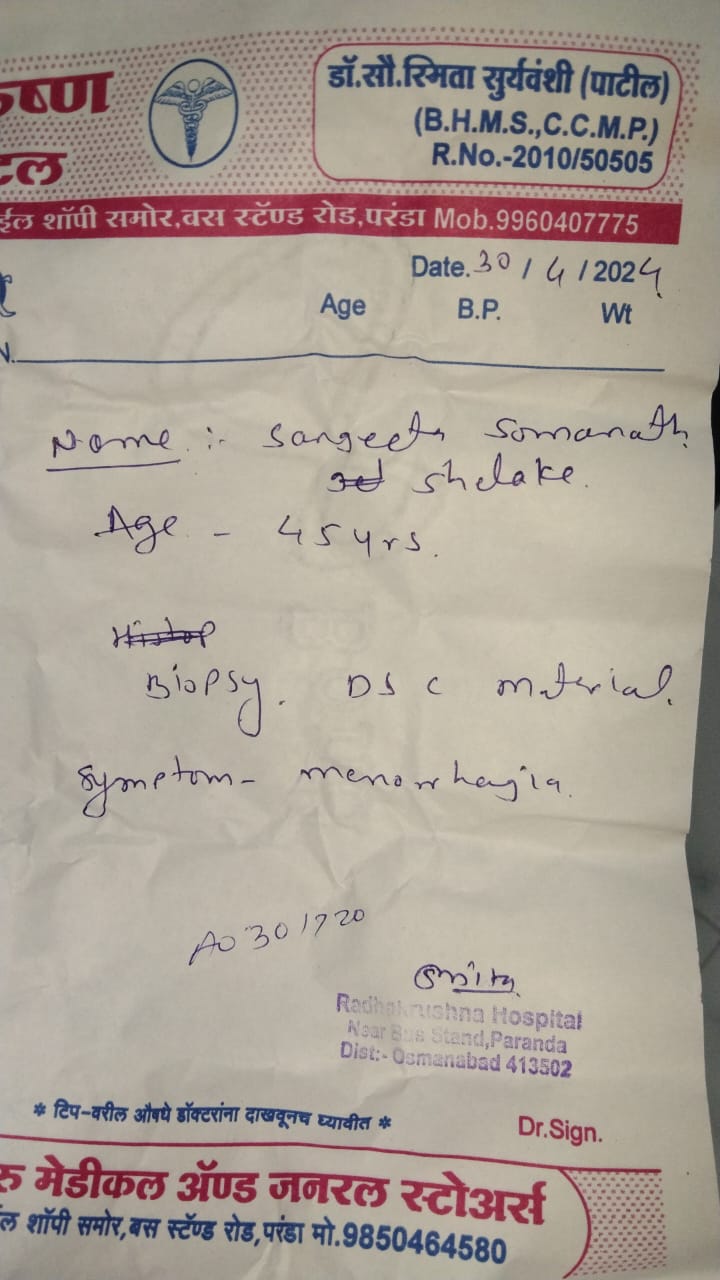 डॉ.सौ.स्मिता सुर्यवंशी (पाटील)
(B.H.M.S.,C.C.M.P.)
R.No.-2010/50505
ष्ण
टल
ईल शॉपी समोर,बस स्टॅण्ड रोड,परंडा Mob.9960407775
Date. 30 / 4 / 2024
Age B.P. Wt
Name :- Sangeeta Somanath
Shelake.
Age - 45 yrs.
Biopsy. D & C material.
Symptom - menorrhagia.
A0301720
Smita
Radhakrushna Hospital
Near Bus Stand,Paranda
Dist:- Osmanabad 413502
* टिप-वरील औषधे डॉक्टरांना दाखवूनच घ्यावीत *
Dr.Sign.
रु मेडीकल ॲण्ड जनरल स्टोअर्स
ल शॉपी समोर,बस स्टॅण्ड रोड,परंडा मो.9850464580